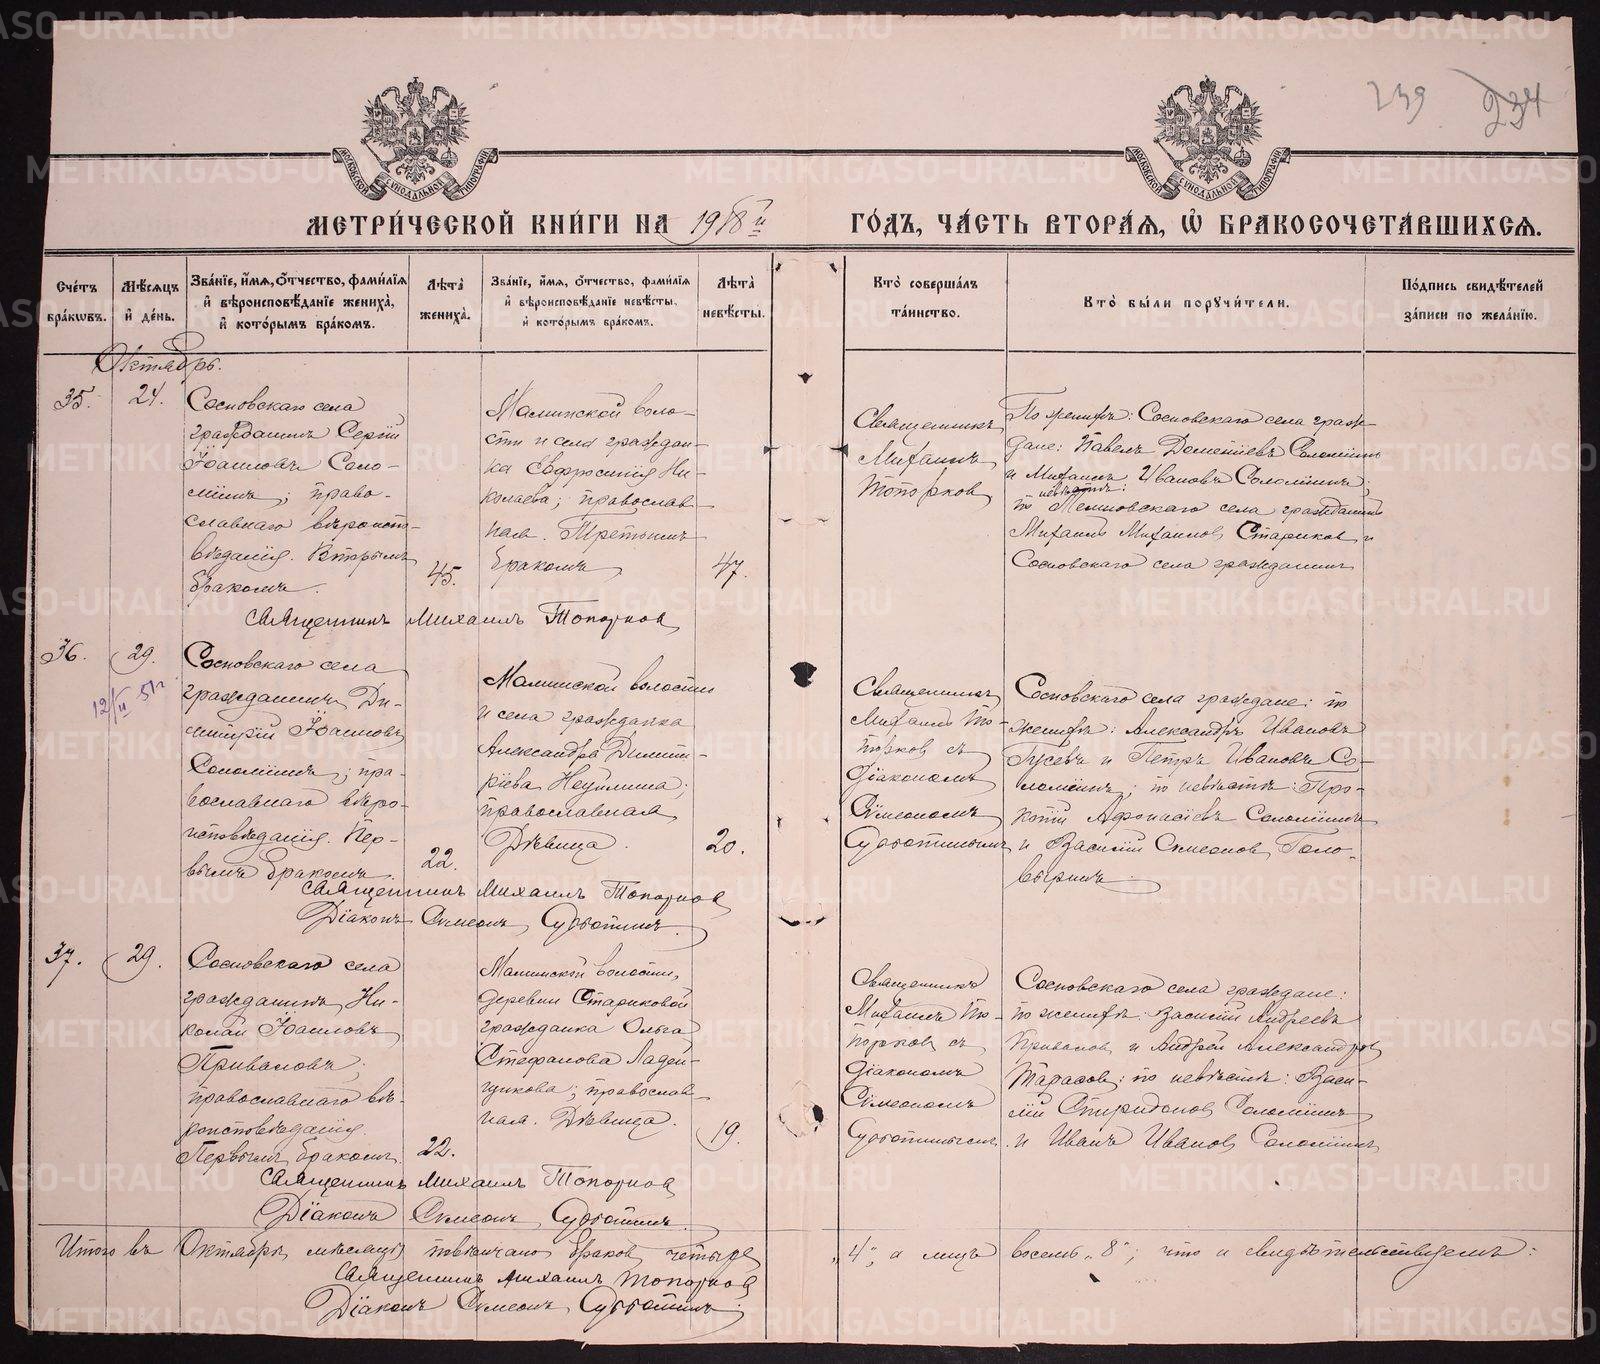 239 234
МОСКОВСКОЙ СѴНОДАЛЬНОЙ ТИПОГРАФІИ
МОСКОВСКОЙ СѴНОДАЛЬНОЙ ТИПОГРАФІИ
МЕТРИ́ЧЕСКОЙ КНИ́ГИ НА 1918 й ГО́ДЪ, ЧА́СТЬ ВТОРА́Я, Ѽ БРАКОСОЧЕТА́ВШИХСЯ.
Сче́тъ бра́кѡвъ.
Мѣ́сяцъ и҆ де́нь.
Зва́нїе, и҆́мя, ѻ҆́тчество, фами́лїя и҆ вѣроисповѣ́данїе жениха̀, и҆ кото́рымъ бра́комъ.
Лѣ́та жениха̀.
Зва́нїе, и҆́мя, ѻ҆́тчество, фами́лїя и҆ вѣроисповѣ́данїе невѣ́сты, и҆ кото́рымъ бра́комъ.
Лѣ́та невѣ́сты.
Кто̀ соверша́лъ та́инство.
Кто̀ бы́ли порꙋчи́тели.
По́дпись свидѣ́телей за́писи по жела́нїю.
Октябрь.
35.
24.
Сосновскаго села
гражданинъ Сергій
Іоанновъ Соло-
минъ; право-
славнаго вѣроиспо-
вѣданія. Вторымъ
бракомъ.
45.
Маминской воло-
сти и села граждан-
ка Евфросинія Ни-
колаева; православ-
ная. Третьимъ
бракомъ
47.
Священникъ
Михаилъ
Топорковъ
По женихѣ: Сосновскаго села граж-
дане: Павелъ Дометіевъ Соломинъ
и Михаилъ Ивановъ Соломинъ;
невѣстѣ:
по села гражданинъ
Михаилъ Михаиловъ Стариковъ и
Сосновскаго села гражданинъ
Священникъ Михаилъ Топорковъ
36.
29.
12/II 51 г.
Сосновскаго села
гражданинъ Ди-
митрій Іоанновъ
Соломинъ; пра-
вославнаго вѣро-
исповѣданія. Пер-
вымъ бракомъ.
22.
Маминской волости
и села гражданка
Александра Димит-
ріева
православная
Дѣвица.
20.
Священникъ
Михаилъ То-
порковъ съ
діакономъ
Сѵмеономъ
Субботинымъ
Сосновскаго села граждане: по
женихѣ: Александръ Ивановъ
Гусевъ и Петръ Ивановъ Со-
ломинъ; по невѣстѣ: Про-
копій Афонасіевъ Соломинъ
и Василій Симеоновъ Голо-
выринъ.
Священникъ Михаилъ Топорковъ
Діаконъ Симеонъ Субботинъ.
37.
29.
Сосновскаго села
гражданинъ Ни-
колай Іоанновъ
Приваловъ;
православнаго вѣ-
роисповѣданія.
Первымъ бракомъ.
22.
Маминской волости,
деревни Стариковой
гражданка Ольга
Стефанова Ладей-
щикова; православ-
ная. Дѣвица.
19.
Священникъ
Михаилъ То-
порковъ съ
діакономъ
Сѵмеономъ
Субботинымъ
Сосновскаго села граждане:
по женихѣ: Василій Андреевъ
Приваловъ и Андрей Александровъ
Тарасовъ; по невѣстѣ: Васи-
лій Спиридоновъ Соломинъ
и Иванъ Ивановъ Соломинъ
Священникъ Михаилъ Топорковъ
Діаконъ Симеонъ Субботинъ.
Итого въ Октябрѣ мѣсяцѣ повѣнчано браковъ четыре „4“, а лицъ восемь „8“; что и свидѣтельствуемъ:
Священникъ Михаилъ Топорковъ
Діаконъ Симеонъ Субботинъ.
METRIKI.GASO-URAL.RU